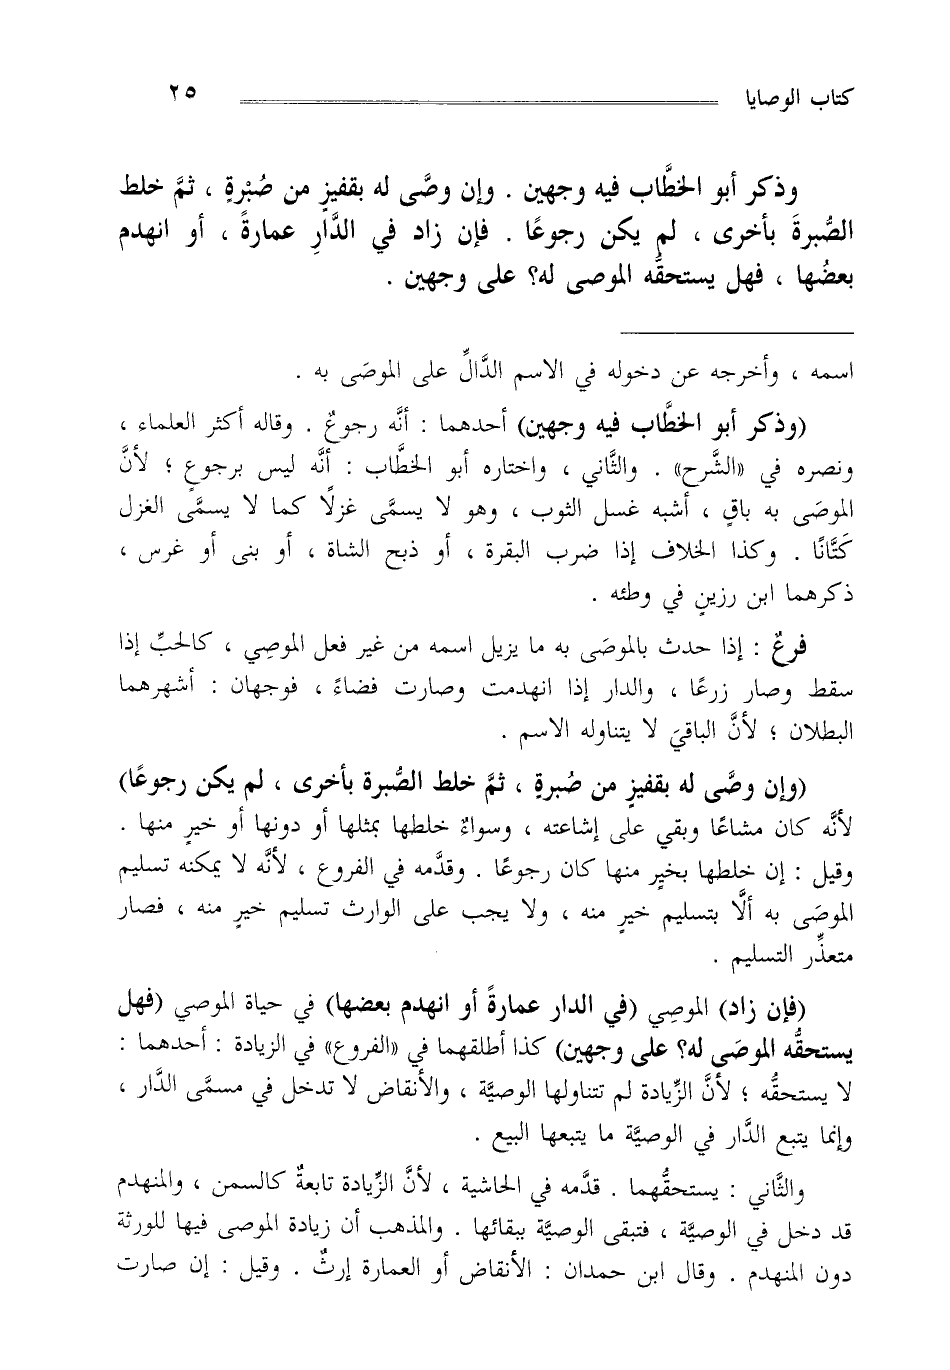 كتاب الوصايا ٢٥
وذكر أبو الخطَّاب فيه وجهين . وإن وصَّى له بقفيزٍ من صُبْرةٍ ، ثمَّ خلط
الصُّبرةَ بأخرى ، لم يكن رجوعًا . فإن زاد في الدَّارِ عمارةً ، أو انهدم
بعضُها ، فهل يستحقُّه الموصى له؟ على وجهين .
اسمه ، وأخرجه عن دخوله في الاسم الدَّالِّ على الموصَى به .
(وذكر أبو الخطَّاب فيه وجهين) أحدهما : أنَّه رجوعٌ . وقاله أكثر العلماء ،
ونصره في «الشَّرح» . والثَّاني ، واختاره أبو الخطَّاب : أنَّه ليس برجوعٍ ؛ لأنَّ
الموصَى به باقٍ ، أشبه غسل الثوب ، وهو لا يسمَّى غزلًا كما لا يسمَّى الغزل
كَتَّانًا . وكذا الخلاف إذا ضرب البقرة ، أو ذبح الشاة ، أو بنى أو غرس ،
ذكرهما ابن رزينٍ في وطئه .
فرعٌ : إذا حدث بالموصَى به ما يزيل اسمه من غير فعل الموصِي ، كالحبِّ إذا
سقط وصار زرعًا ، والدار إذا انهدمت وصارت فضاءً ، فوجهان : أشهرهما
البطلان ؛ لأنَّ الباقيَ لا يتناوله الاسم .
(وإن وصَّى له بقفيزٍ من صُبرةٍ ، ثمَّ خلط الصُّبرة بأخرى ، لم يكن رجوعًا)
لأنَّه كان مشاعًا وبقي على إشاعته ، وسواءٌ خلطها بمثلها أو دونها أو خيرٍ منها .
وقيل : إن خلطها بخيرٍ منها كان رجوعًا . وقدَّمه في الفروع ، لأنَّه لا يمكنه تسليم
الموصَى به ألَّا بتسليم خيرٍ منه ، ولا يجب على الوارث تسليم خيرٍ منه ، فصار
متعذِّر التسليم .
(فإن زاد) الموصِي (في الدار عمارةً أو انهدم بعضها) في حياة الموصي (فهل
يستحقُّه الموصَى له؟ على وجهين) كذا أطلقهما في «الفروع» في الزيادة : أحدهما :
لا يستحقُّه ؛ لأنَّ الزِّيادة لم تتناولها الوصيَّة ، والأنقاض لا تدخل في مسمَّى الدَّار ،
وإنما يتبع الدَّار في الوصيَّة ما يتبعها البيع .
والثَّاني : يستحقُّهما . قدَّمه في الحاشية ، لأنَّ الزِّيادة تابعةٌ كالسمن ، والمنهدم
قد دخل في الوصيَّة ، فتبقى الوصيَّة ببقائها . والمذهب أن زيادة الموصى فيها للورثة
دون المنهدم . وقال ابن حمدان : الأنقاض أو العمارة إرثٌ . وقيل : إن صارت